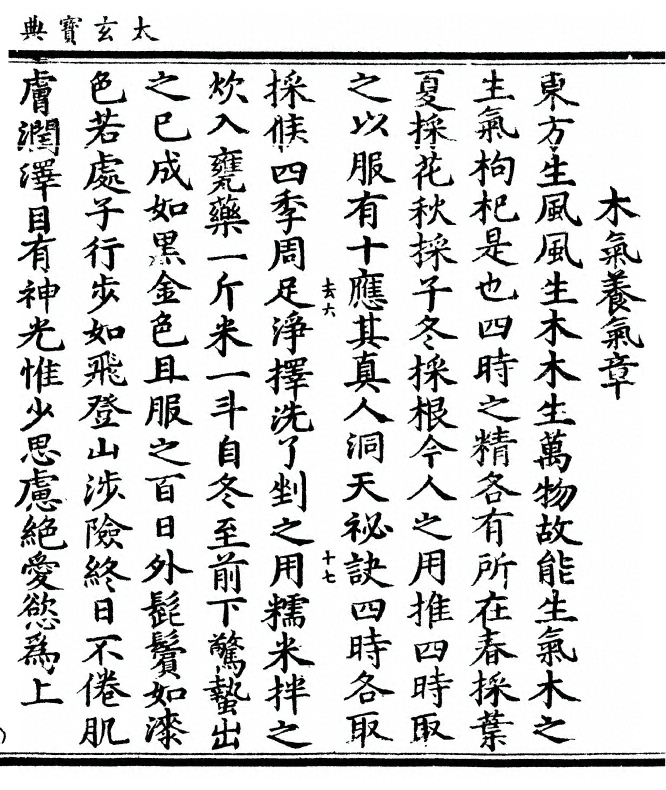 太玄寶典
木氣養氣章
東方生風風生木木生萬物故能生氣木之
生氣枸杞是也四時之精各有所在春採葉
夏採花秋採子冬採根今人之用推四時取
之以服有十應其真人洞天祕訣四時各取
去六
十七
採候四季周足淨擇洗了剉之用糯米拌之
炊入甕藥一斤米一斗自冬至前下驚蟄出
之已成如黑金色且服之百日外髭鬢如漆
色若處子行步如飛登山涉險終日不倦肌
膚潤澤目有神光惟少思慮絕愛慾爲上